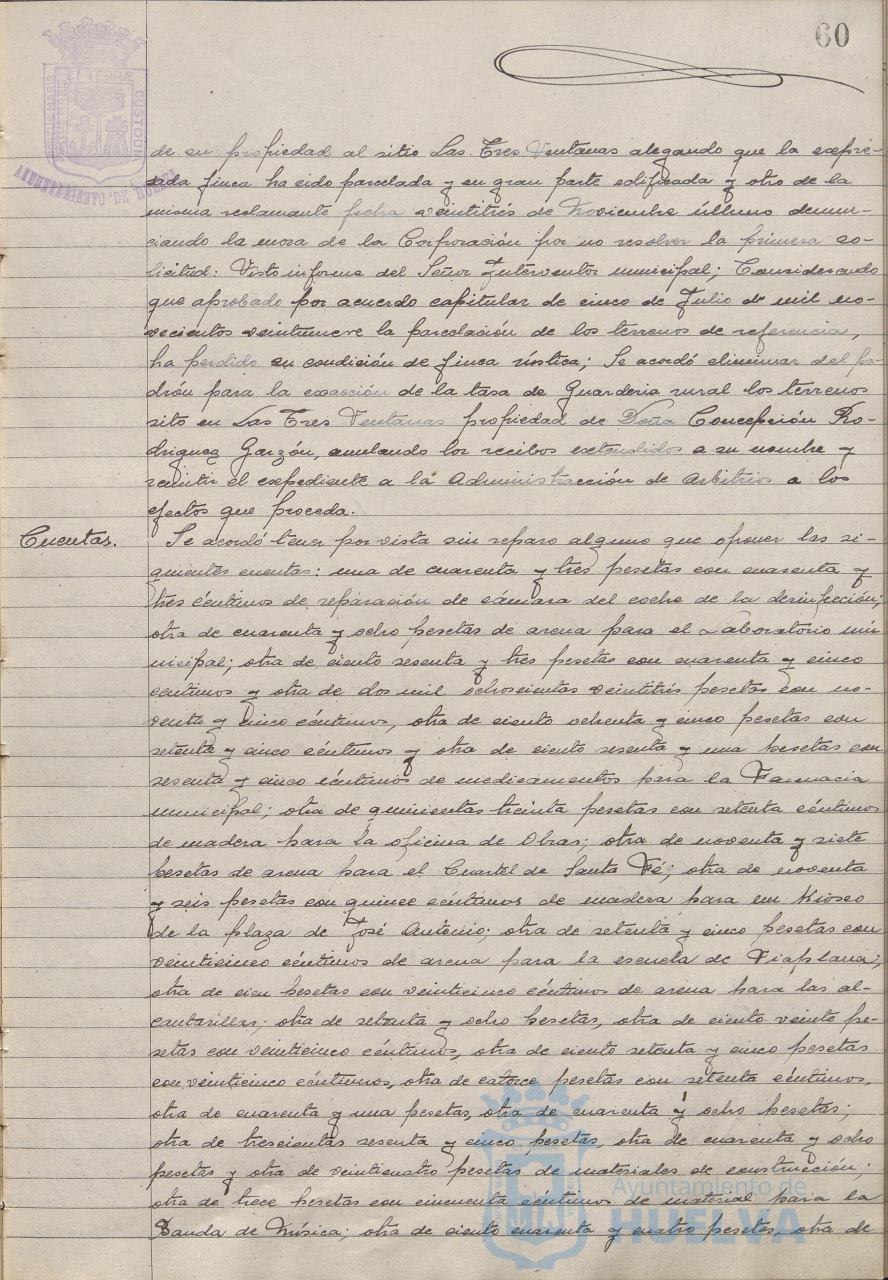 60
de su propiedad al sitio Las Tres Ventanas alegando que la expre-
sada finca ha sido parcelada y en gran parte edificada y otro de la
misma reclamante fecha veintitrés de Noviembre último denun-
ciando la mora de la Corporación por no resolver la primera so-
licitud: Visto informe del Señor Interventor municipal; Considerando
que aprobado por acuerdo capitular de cinco de Julio de mil no-
vecientos veintinueve la parcelación de los terrenos de referencia,
ha perdido su condición de finca rústica; Se acordó eliminar del pa-
drón para la exacción de la tasa de Guarderia rural los terrenos
sito en Las Tres Ventanas propiedad de Doña Concepción Ro-
driguez Garzón, anulando los recibos extendidos a su nombre y
remitir el expediente a la Administracción de Arbitrios a los
efectos que proceda.
Cuentas.
Se acordó tener por vista sin reparo alguno que oponer las si-
guientes cuentas: una de cuarenta y tres pesetas con cuarenta y
tres céntimos de reparación de cámara del coche de la desinfección;
otra de cuarenta y ocho pesetas de arena para el Laboratorio mu-
nicipal; otra de ciento sesenta y tres pesetas con cuarenta y cinco
centimos y otra de dos mil ochoscientas veintitrés pesetas con no-
venta y cinco céntimos, otra de ciento ochenta y cinco pesetas con
setenta y cinco céntimos y otra de ciento sesenta y una pesetas con
sesenta y cinco céntimos de medicamentos para la Farmacia
municipal; otra de quinientas treinta pesetas con setenta céntimos
de madera para la oficina de Obras; otra de noventa y siete
pesetas de arena para el Cuartel de Santa Fé; otra de noventa
y seis pesetas con quince céntimos de madera para un Kiosco
de la plaza de José Antonio; otra de setenta y cinco pesetas con
veinticinco céntimos de arena para la escuela de Viaplana;
otra de cien pesetas con veinticinco céntimos de arena para las al-
cantarillas; otra de setenta y ocho pesetas, otra de ciento veinte pe-
setas con veinticinco céntimos, otra de ciento setenta y cinco pesetas
con veinticinco céntimos, otra de catorce pesetas con setenta céntimos,
otra de cuarenta y una pesetas, otra de cuarenta y ocho pesetas;
otra de trescientas sesenta y cinco pesetas, otra de cuarenta y ocho
pesetas y otra de veinticuatro pesetas de materiales de construcción;
otra de trece pesetas con cincuenta céntimos de material para la
Banda de Música; otra de ciento cuarenta y cuatro pesetas, otra de
Ayuntamiento de
HUELVA